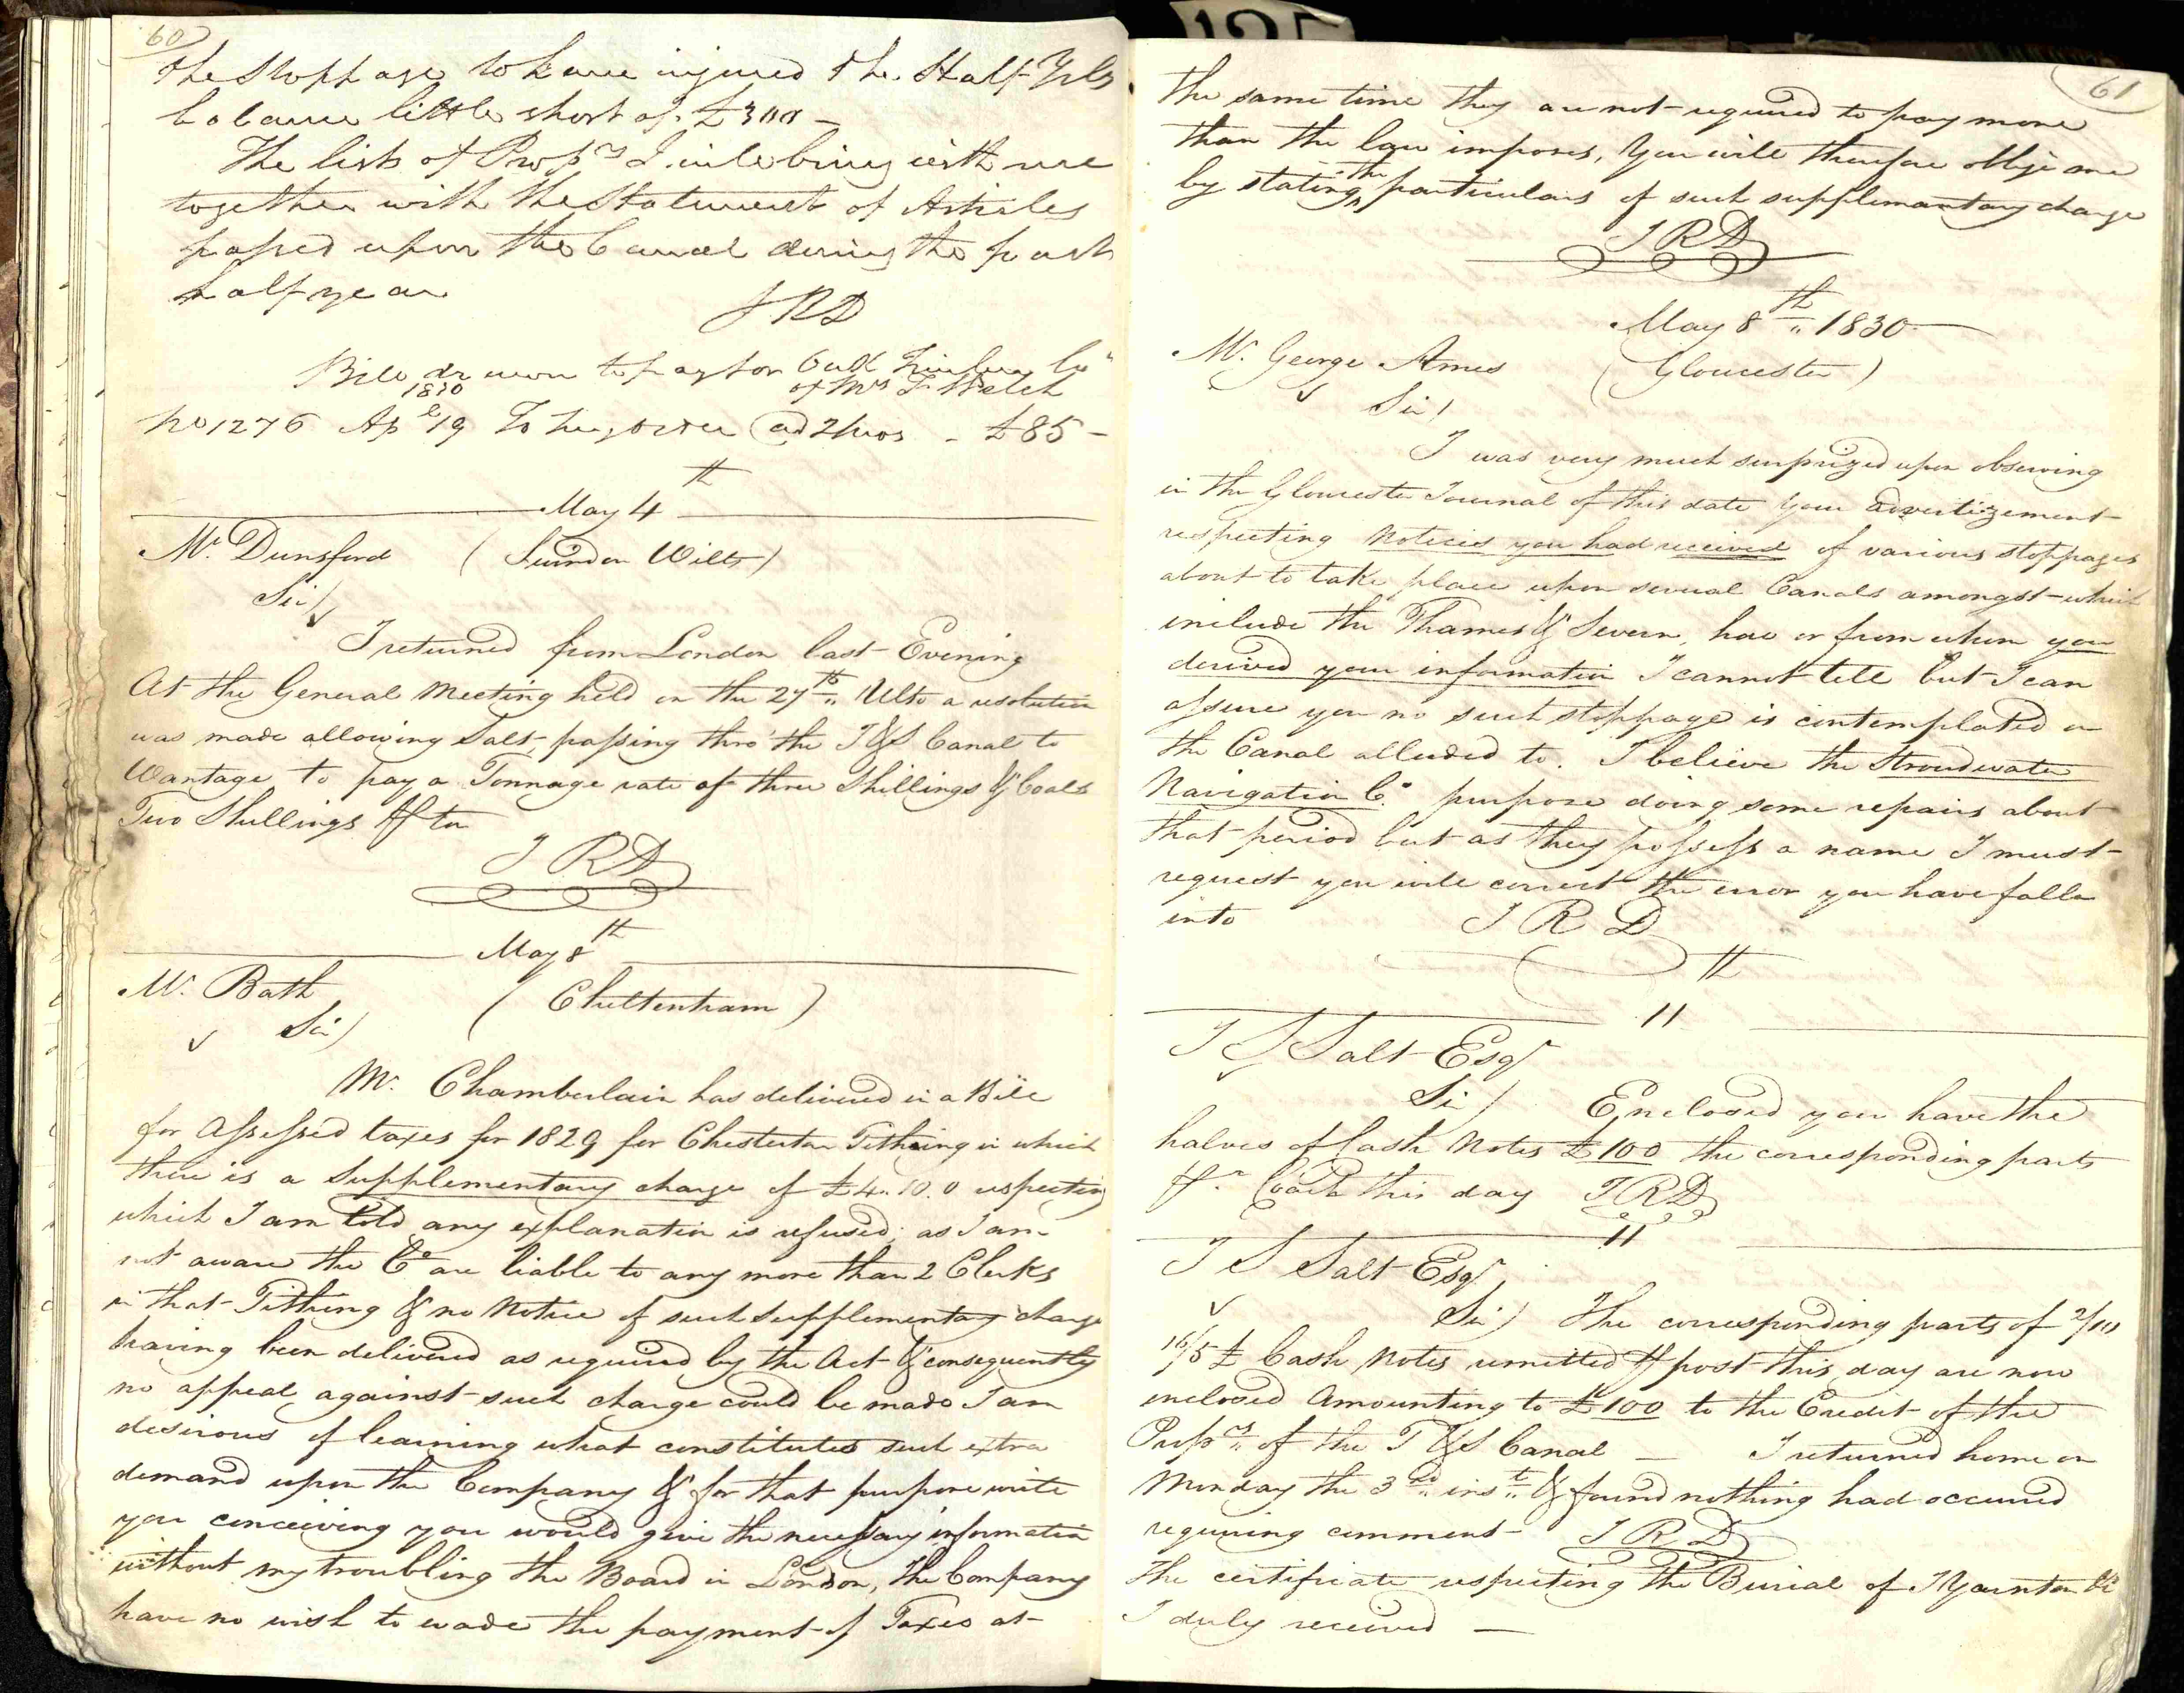 60
the stoppage to have injured the Half Yrly
balance little short of £300 –
The lists of Proprs I will bring with me
together with the Statement of Articles
passed upon the Canal during the past
half year
JRD
Bill drawn to pay for Oak Timber bot
of Mrs Welch
1830
No 1276 Apl 19 To her order @ 2 mos - £85 -
May 4th
Mr. Dunsford (Swindon Wilts)
Sir/
I returned from London last Evening
At the General Meeting held on the 27th Ulto a resolution
was made allowing Salt, passing thro' the T & S Canal to
Wantage to pay a Tonnage rate of three Shillings & Coals
Two Shillings ⅌ ton
JRD
May 8th
Mr. Bath (Cheltenham)
Sir/
Mr. Chamberlain has delivered in a Bill
for Assessed taxes for 1829 for Chesterton Tithing in which
there is a Supplementary charge of £4.10.0 respecting
which I am told any explanation is refused; as I am
not aware the Co are liable to any more than 2 Clerks
in that Tithing & no Notice of such Supplementary charge
having been delivered as required by the Act & consequently
no appeal against such charge could be made I am
desirous of learning what constitutes such extra
demand upon the Company & for that purpose write
you conceiving you would give the necessary information
without my troubling the Board in London, the Company
have no wish to evade the payment of Taxes at
61
the same time they are not required to pay more
than the law imposes, You will therefore oblige me
by stating the particulars of such supplemantary charge
JRD
May 8th 1830
Mr. George Ames (Gloucester)
Sir/
I was very much surprized upon observing
in the Gloucester Journal of this date your advertizement
respecting Notices you had received of various stoppages
about to take place upon several Canals amongst which
include the Thames & Severn, how or from whom you
derived your information I cannot tell but I can
assure you no such stoppage is contemplated on
the Canal alluded to. I believe the Stroudwater
Navigation Co. purpose doing some repairs about
that period but as they possess a name I must
request you will correct the error you have fallen
into JRD
11th
T S Salt Esqr
Sir/ Enclosed you have the
halves of Cash Notes £100 the corresponding parts
⅌r Coach this day JRD
11
T S Salt Esqr
Sir/ The corresponding parts of 2/10
16/5 £ Cash Notes remitted ⅌ post this day are now
inclosed Amounting to £100 to the Credit of the
Proprs of the T & S Canal — I returned home on
Monday the 3rd inst & found nothing had occurred
requiring comment JRD
The certificate respecting the Burial of J Yarnton &c
I duly received —